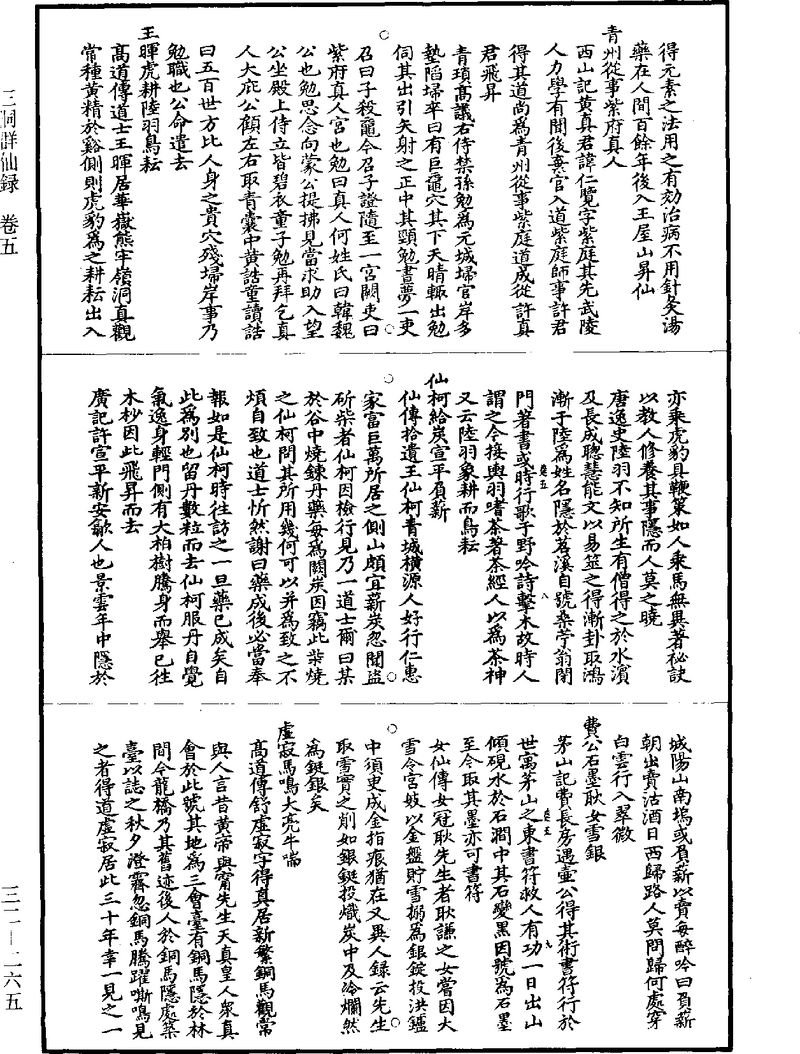 三洞群仙録　卷五
得元素之法用之有効治病不用針灸湯
藥在人間百餘年後入王屋山昇仙
青州從事紫府真人
西山記黄真君諱仁覽字紫庭其先武陵
人力學有聞後棄官入道紫庭師事許君
得其道尚爲青州從事紫庭道成從許真
君飛昇
青瑣髙議右侍禁孫勉爲元城埽官岸多
墊陷埽卒曰有巨黿穴其下天晴輙出勉
伺其出引矢射之正中其頸勉晝夢一吏
召曰子殺黿令召子證隨至一宫闕吏曰
紫府真人宫也勉曰真人何姓氏曰韓魏
公也勉思念向蒙公提拂見當求助入望
公坐殿上侍立皆碧衣童子勉再拜乞真
人大庇公顧左右取青囊中黄誥童讀誥
曰五百世方比人身之貴穴殘埽岸事乃
勉職也公命遣去
王暉虎耕陸羽鳥耘
髙道傳道士王暉居華嶽熊牢嶺洞真觀
常種黄精於谿側則虎豹爲之耕耘出入
亦乘虎豹具鞭策如人乘馬無異著祕訣
以教人修養其事隱而人莫之曉
唐逸史陸羽不知所生有僧得之於水濵
及長成聰慧能文以易筮之得漸卦取鴻
漸于陸爲姓名隱於苕溪自號桑苧翁閉
門著書或時行歌于野吟詩擊木故時人
謂之今接輿羽嗜茶著茶經人以爲茶神
又云陸羽象耕而鳥耘
仙柯給炭宣平負薪
仙傳拾遺王仙柯青城横源人好行仁惠
家富巨萬所居之側山頗宜薪炭忽聞盗
斫柴者仙柯因檢行見乃一道士爾曰某
於谷中燒鍊丹藥每爲闕炭因竊此柴燒
之仙柯問其所用幾何可以并爲致之不
煩自致也道士忻然謝曰藥成後必當奉
報如是仙柯時往訪之一旦藥已成矣自
此爲别也留丹數粒而去仙柯服丹自覺
氣逸身輕門側有大柏樹騰身而舉已徃
木杪因此飛昇而去
廣記許宣平新安歙人也景雲年中隱於
城陽山南塢或負薪以賣每醉吟曰負薪
朝出賣沽酒日西歸路人莫問歸何處穿
白雲行入翠微
費公石墨耿女雪銀
茅山記費長房遇壷公得其術書符行於
世寓茅山之東書符救人有功一日出山
傾硯水於石澗中其石變黒因號爲石墨
至今取其墨亦可書符
女仙傳女冠耿先生者耿謙之女嘗因大
雪令宫妓以金盤貯雪搦爲銀錠投洪鑪
中須臾成金指痕猶在又異人録云先生
取雪實之削如銀鋌投熾炭中及冷爛然
爲鋌銀矣
虚寂馬鳴大亮牛喘
髙道傳舒虚寂字得真居新繁銅馬觀常
與人言昔黄帝與甯先生天真皇人衆真
會於此號其地爲三會臺有銅馬隱於林
間今龍橋乃其舊迹後人於銅馬隱處築
臺以誌之秋夕澄霽忽銅馬騰躍嘶鳴見
之者得道虚寂居此三十年幸一見之一
三二—二六五